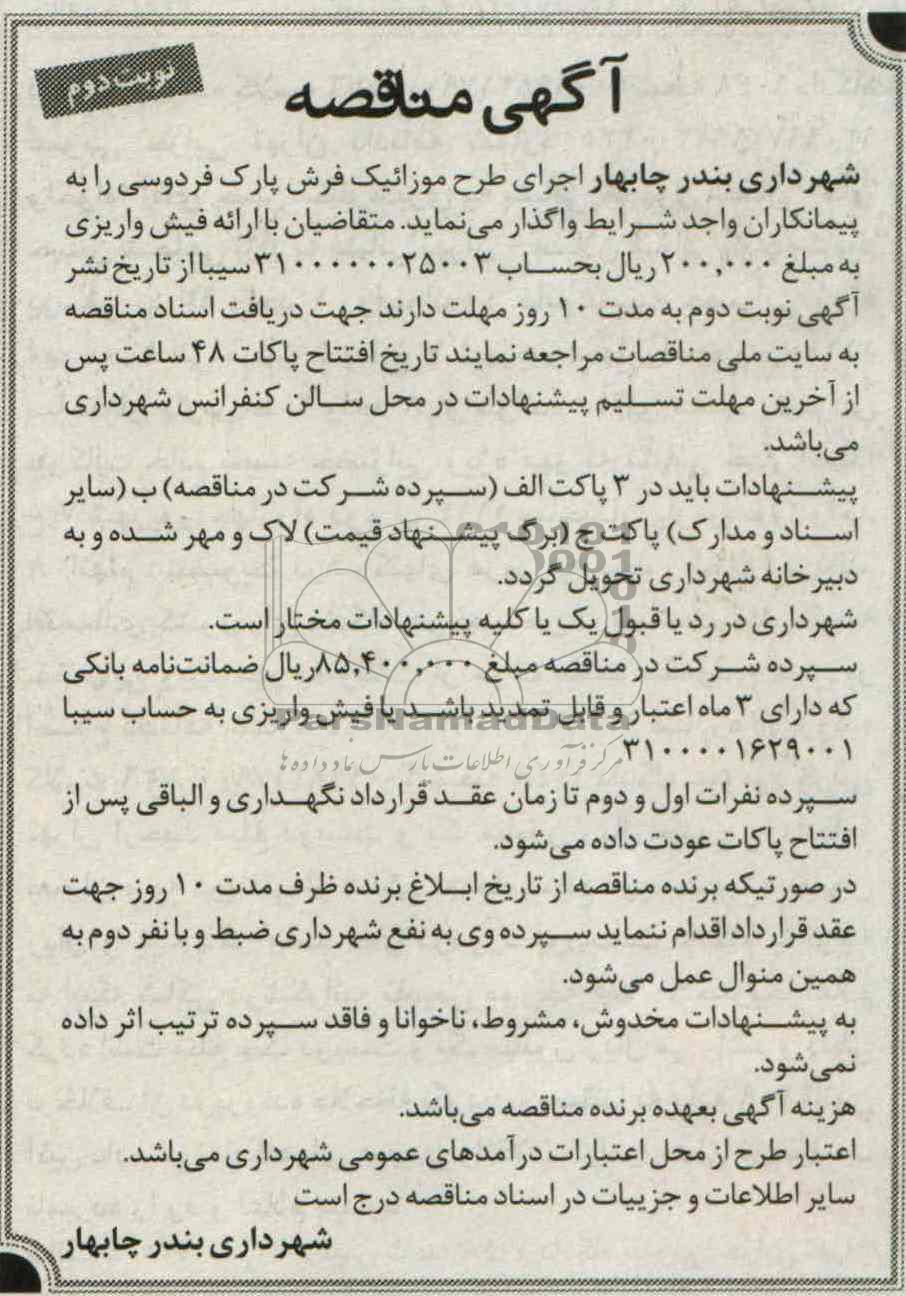 نوبت دوم
آگهی مناقصه
شهرداری بندر چابهار اجرای طرح موزائیک فرش پارک فردوسی را به
پیمانکاران واجد شرایط واگذار می‌نماید. متقاضیان با ارائه فیش واریزی
به مبلغ ۲۰۰,۰۰۰ ریال بحساب ۳۱۰۰۰۰۰۰۲۵۰۰۳ سیبا از تاریخ نشر
آگهی نوبت دوم به مدت ۱۰ روز مهلت دارند جهت دریافت اسناد مناقصه
به سایت ملی مناقصات مراجعه نمایند تاریخ افتتاح پاکات ۴۸ ساعت پس
از آخرین مهلت تسلیم پیشنهادات در محل سالن کنفرانس شهرداری
می‌باشد.
پیشنهادات باید در ۳ پاکت الف (سپرده شرکت در مناقصه) ب (سایر
اسناد و مدارک) پاکت ج (برگ پیشنهاد قیمت) لاک و مهر شده و به
دبیرخانه شهرداری تحویل گردد.
شهرداری در رد یا قبول یک یا کلیه پیشنهادات مختار است.
سپرده شرکت در مناقصه مبلغ ۸۵,۴۰۰,۰۰۰ ریال ضمانت‌نامه بانکی
که دارای ۳ ماه اعتبار و قابل تمدید باشد یا فیش واریزی به حساب سیبا
۳۱۰۰۰۰۱۶۲۹۰۰۱
سپرده نفرات اول و دوم تا زمان عقد قرارداد نگهداری و الباقی پس از
افتتاح پاکات عودت داده می‌شود.
در صورتیکه برنده مناقصه از تاریخ ابلاغ برنده ظرف مدت ۱۰ روز جهت
عقد قرارداد اقدام ننماید سپرده وی به نفع شهرداری ضبط و با نفر دوم به
همین منوال عمل می‌شود.
به پیشنهادات مخدوش، مشروط، ناخوانا و فاقد سپرده ترتیب اثر داده
نمی‌شود.
هزینه آگهی بعهده برنده مناقصه می‌باشد.
اعتبار طرح از محل اعتبارات درآمدهای عمومی شهرداری می‌باشد.
سایر اطلاعات و جزییات در اسناد مناقصه درج است
شهرداری بندر چابهار
ParsNamadData
مرکز فرآوری اطلاعات پارس نماد داده ها